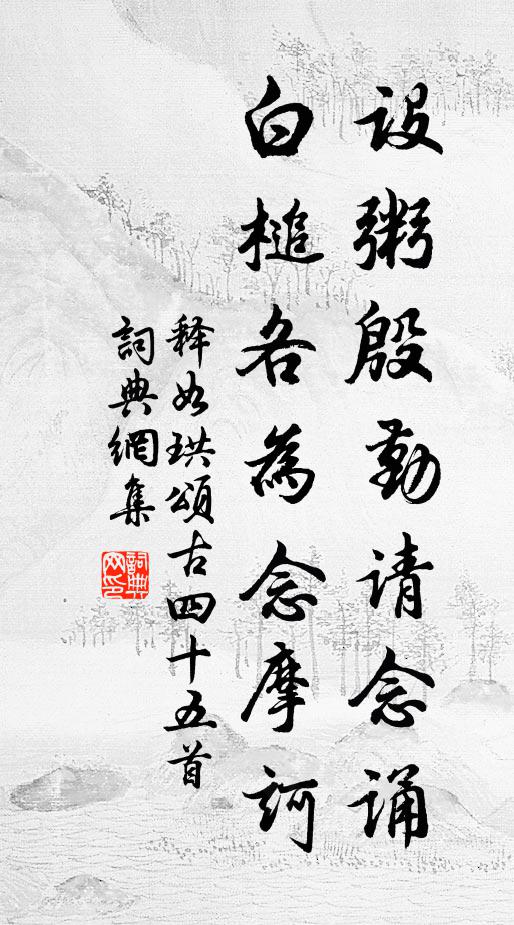 设粥殷勤请念诵
白槌各為念摩訶
释如珙頌古四十五首
詞典網集
詞典网印